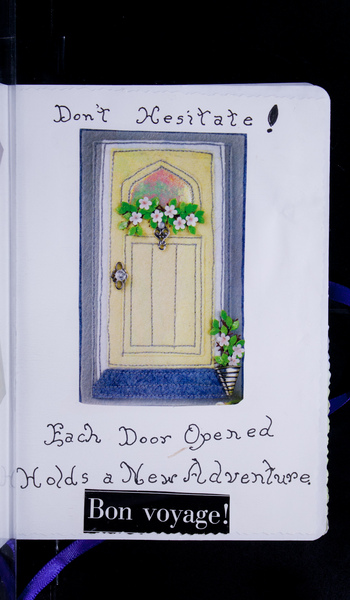 Don't Hesitate!
Each Door Opened
Holds a New Adventure.
Bon voyage!